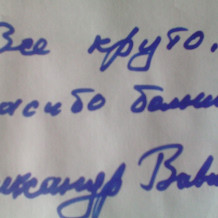 Все круто.
асибо больш
ександр Вав